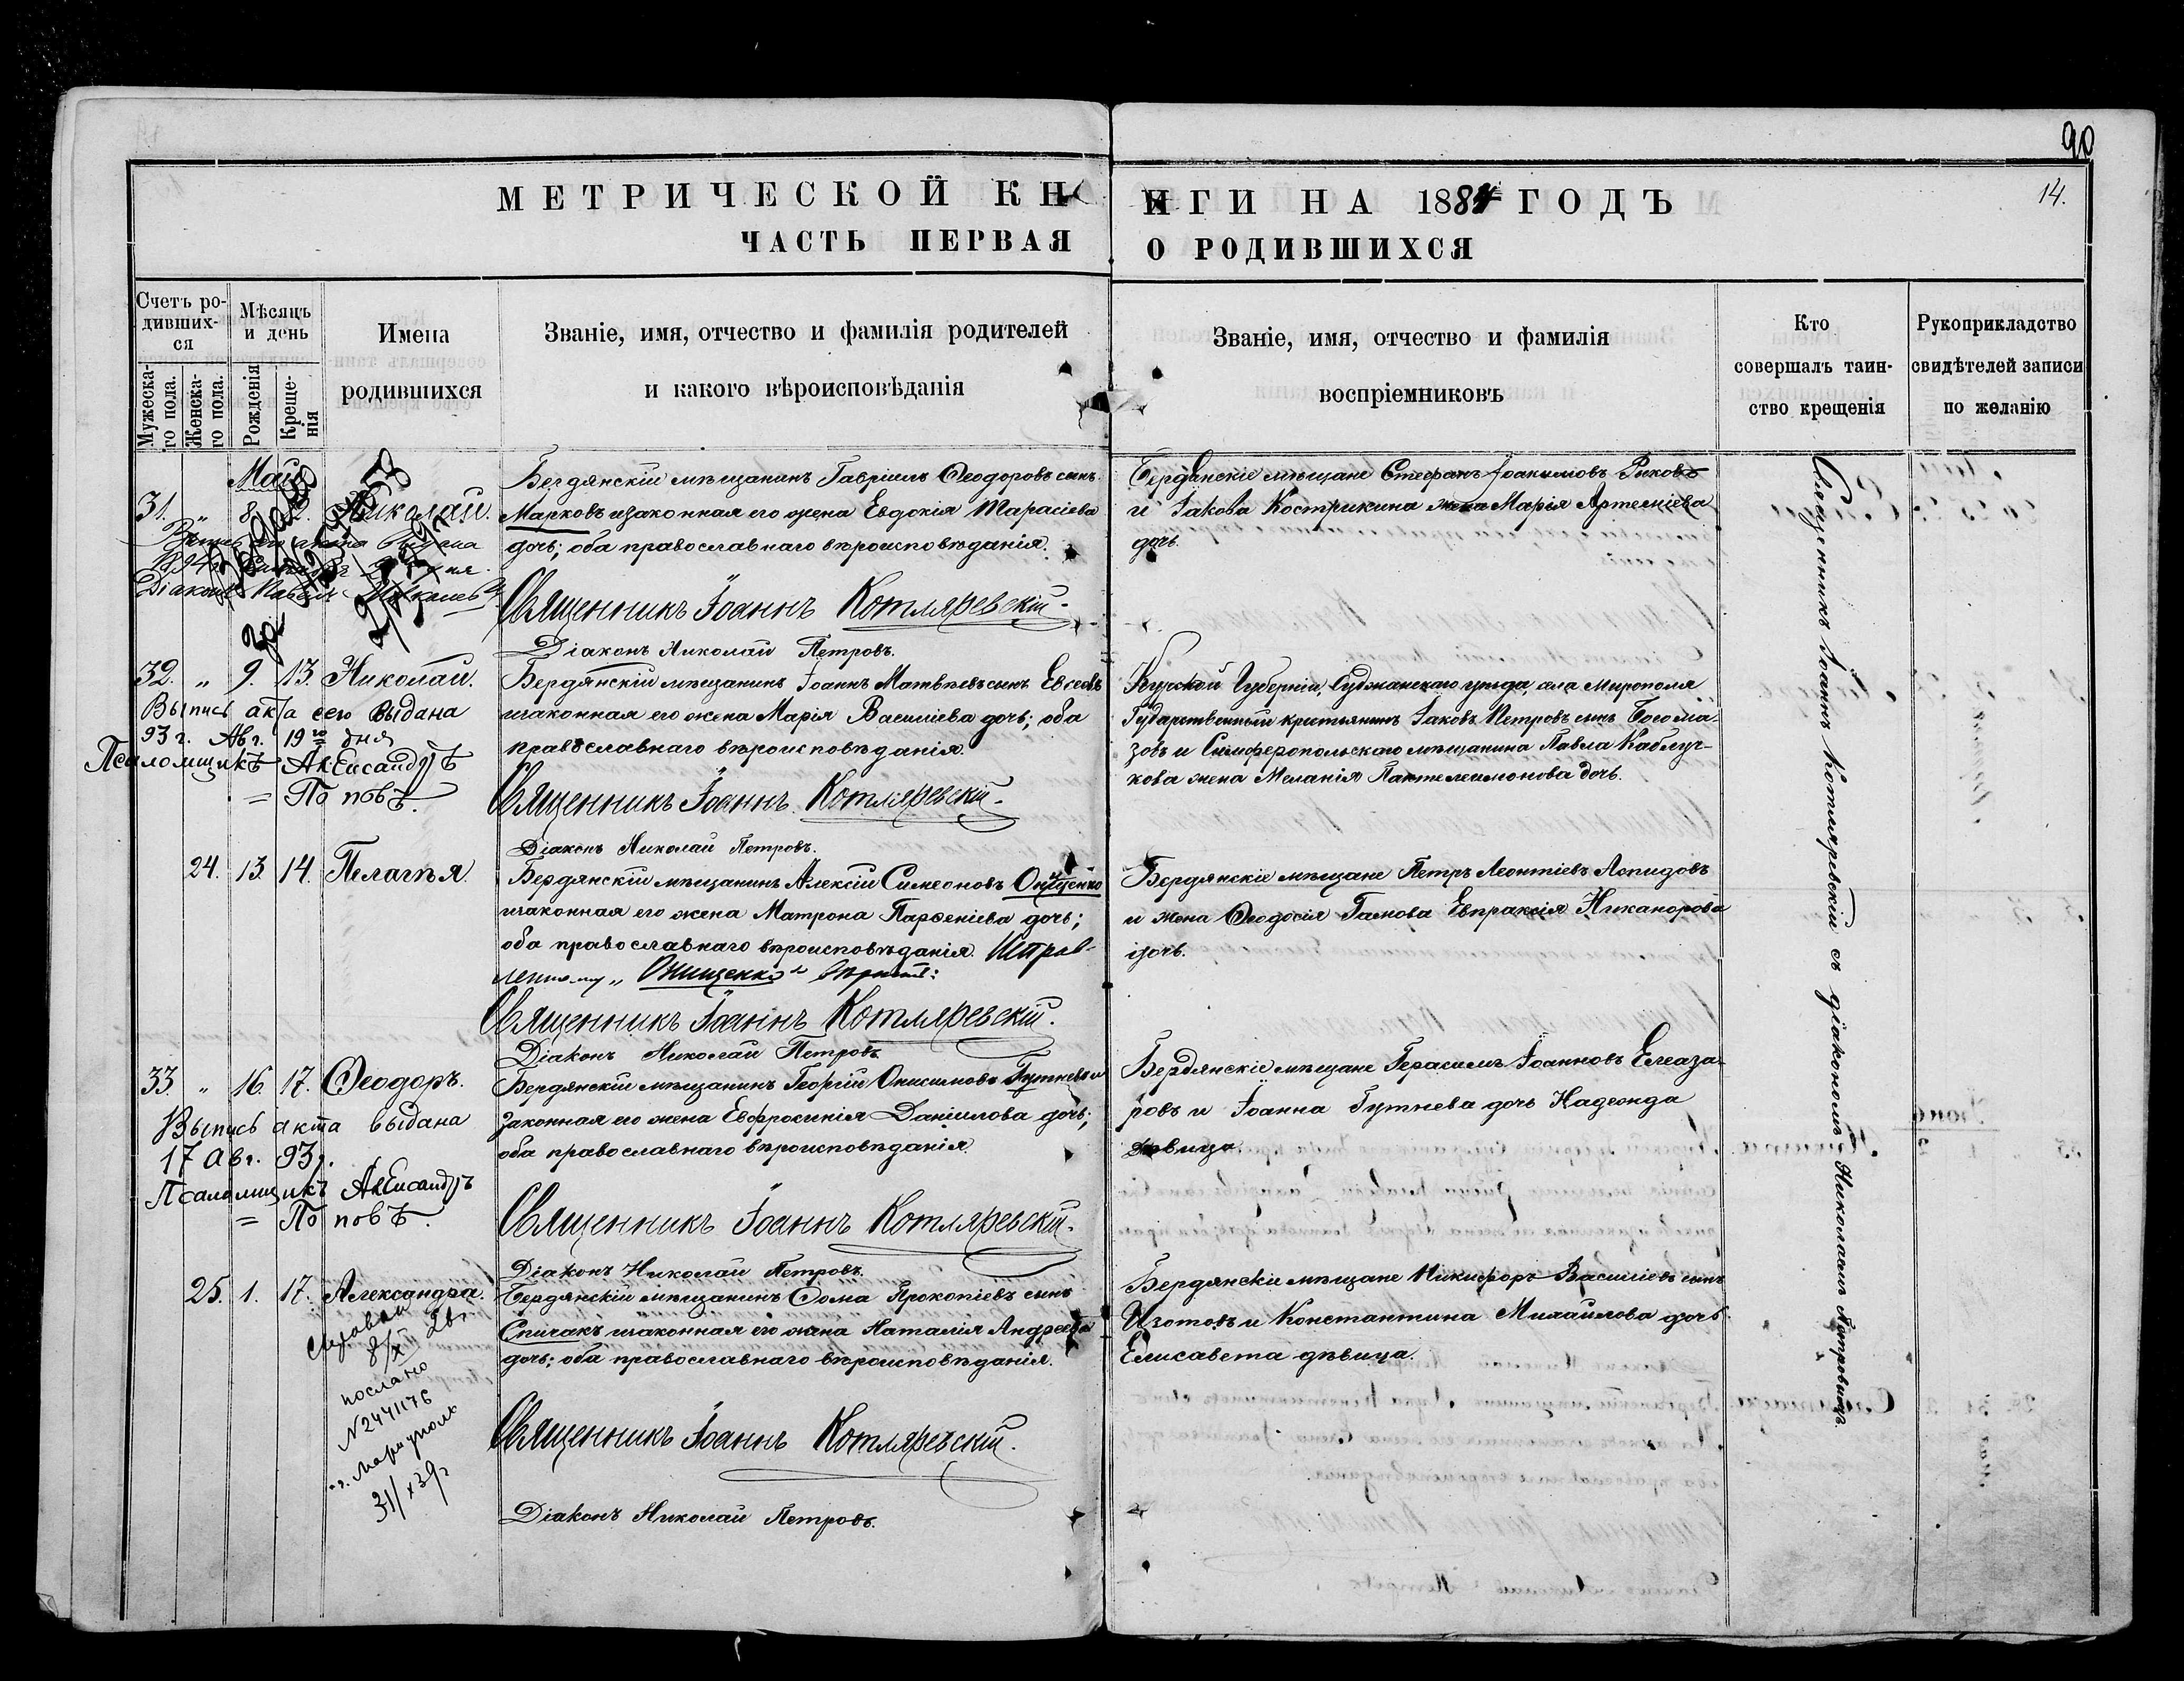 90
14.
МЕТРИЧЕСКОЙ КНИГИ НА 1884 ГОДЪ
ЧАСТЬ ПЕРВАЯ О РОДИВШИХСЯ
Счетъ ро-
дивших-
ся
Мужеска-
го пола.
Женска-
го пола.
Мѣсяцъ
и день
Рожденія
Креще-
нія
Имена
родившихся
Званіе, имя, отчество и фамилія родителей
и какого вѣроисповѣданія
Званіе, имя, отчество и фамилія
воспріемниковъ
Кто
совершалъ таин-
ство крещенія
Рукоприкладство
свидѣтелей записи
по желанію
Май
31. " 8. Николай.
Выпись акта выдана
1894
Діаконъ Павелъ
Бердянскій мѣщанинъ Гавріилъ Ѳеодоровъ сынъ
Марковъ изаконная его жена Евдокія Тарасіева
дочь; оба православнаго вѣроисповѣданія.
Священникъ Іоаннъ Котляревскій.
Діаконъ Николай Петровъ.
Бердянскіе мѣщане Стефанъ Іоакимовъ Рыковъ
и Іакова Кострикина жена Марія Артеміева
дочь.
32. " 9. 13. Николай.
Выпись акта сего выдана
93 г. Авг. 19го дня
Псаломщикъ Александръ
= Поповъ.
Бердянскій мѣщанинъ Іоаннъ Матвѣевъ сынъ Евсеевъ
изаконная его жена Марія Василіева дочь; оба
православнаго вѣроисповѣданія.
Священникъ Іоаннъ Котляревскій.
Діаконъ Николай Петровъ.
Курской Губерніи, Суджанскаго уѣзда, села Мирополя
Государственный крестьянинъ Іаковъ Петровъ сынъ Богома-
зовъ и Симферопольскаго мѣщанина Павла Каблуч-
кова жена Меланія Пантелеимонова дочь.
24. 13. 14. Пелагія.
Бердянскій мѣщанинъ Алексій Симеоновъ Онищенко
изаконная его жена Матрона Парѳеніева дочь;
оба православнаго вѣроисповѣданія. Исправ-
ленному „Онищенко" вѣрить:
Священникъ Іоаннъ Котляревскій.
Діаконъ Николай Петровъ
Бердянскіе мѣщане Петръ Леонтіевъ Лепидовъ
и жена Ѳеодосія Евпраксія Никанорова
дочь.
33. " 16. 17. Ѳеодоръ.
Выпись акта выдана
17 Авг. 93 г.
Псаломщикъ Александръ
= Поповъ.
Бердянскій мѣщанинъ Георгій Онисимовъ Гутневъ и
законная его жена Евфросинія Даніилова дочь;
оба православнаго вѣроисповѣданія.
Священникъ Іоаннъ Котляревскій.
Діаконъ Николай Петровъ.
Бердянскіе мѣщане Герасимъ Іоанновъ Елеаза-
ровъ и Іоанна Гутнева дочь Надежда
дѣвица.
25. 1. 17. Александра.
послано
N 2441176
г. Мариуполь
31/X 39 г
Бердянскій мѣщанинъ Ѳома Прокопіевъ сынъ
Спичакъ изаконная его жена Наталія Андреева
дочь; оба православнаго вѣроисповѣданія.
Священникъ Іоаннъ Котляревскій.
Діаконъ Николай Петровъ.
Бердянскіе мѣщане Никифоръ Василіевъ сынъ
Изотовъ и Константина Михайлова дочь
Елисавета дѣвица.
Священникъ Іоаннъ Котляревскій съ діакономъ Николаемъ Петровымъ.